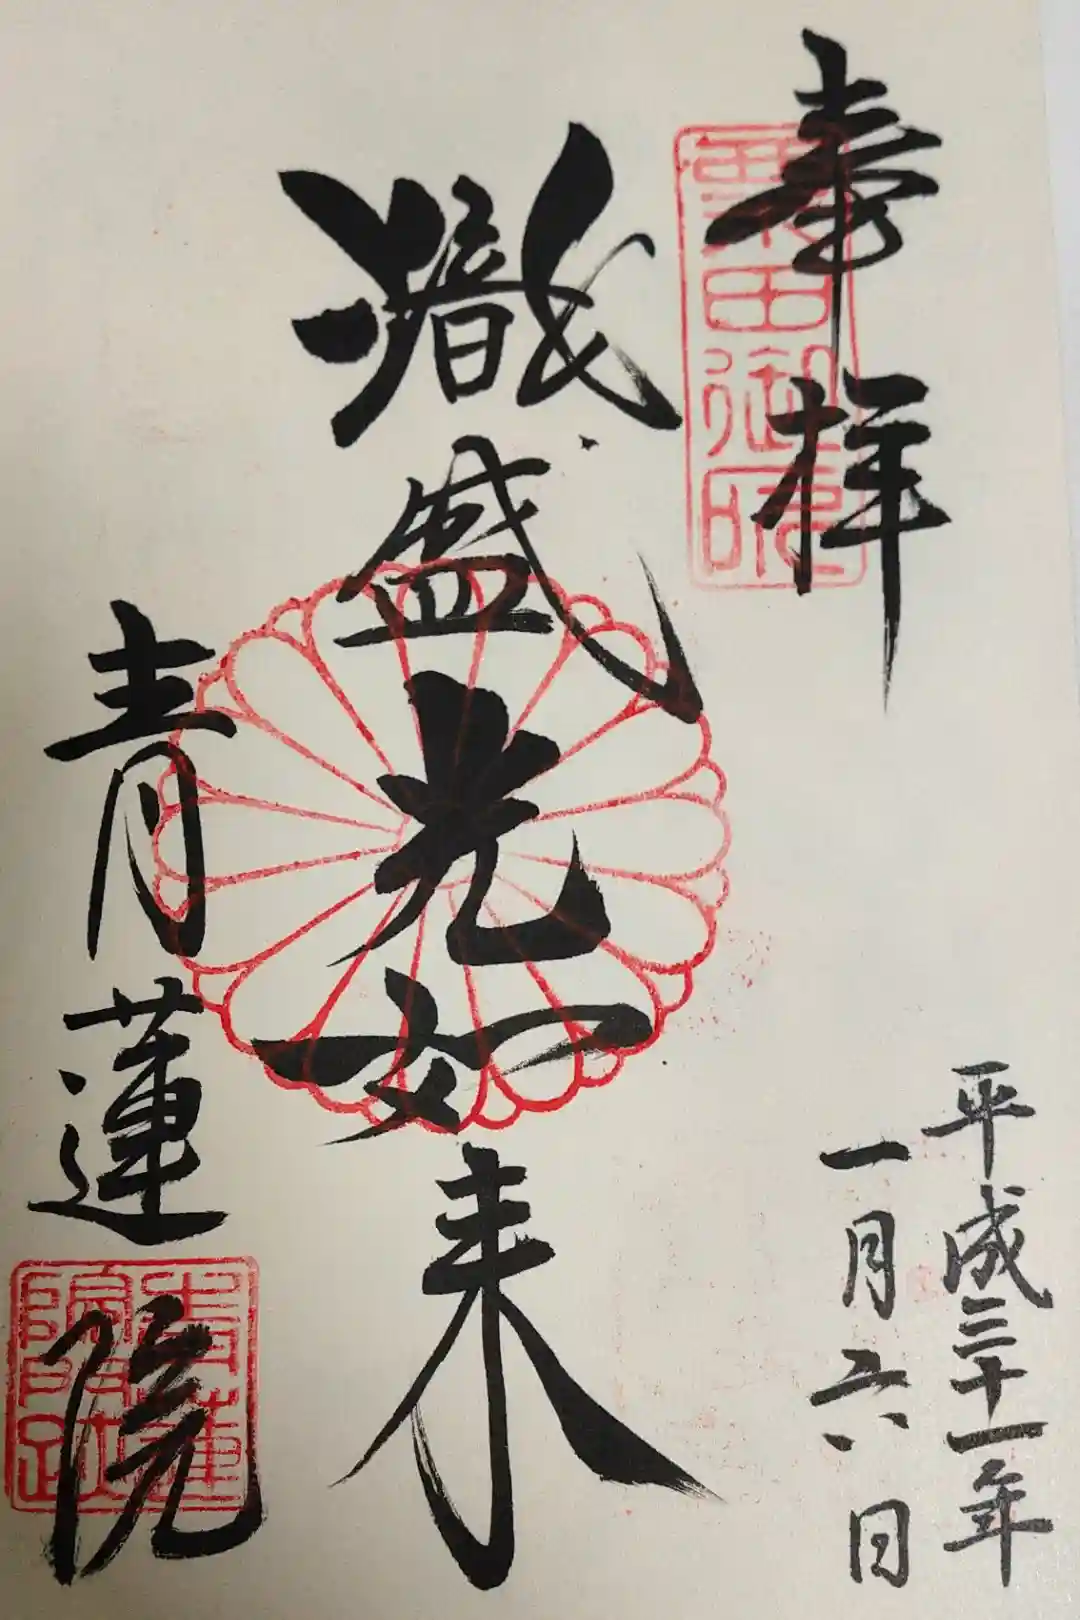 奉拝
粟田御所
平成三十一年
一月六日
熾盛光如来
青蓮院
青蓮院門跡